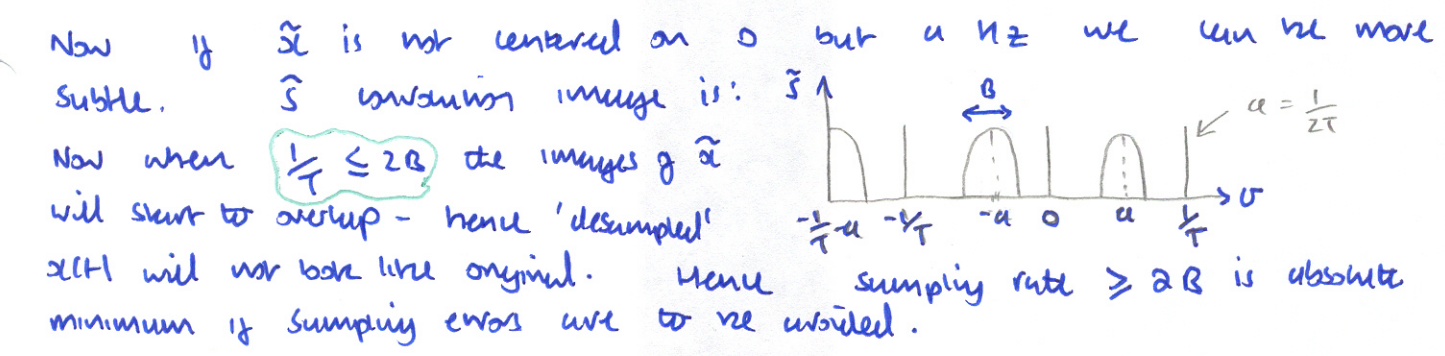 Now if x̃ is not centered on 0 but u Hz we can be more
subtle. s̃ convolution image is: s̃ B u = 1/2T
Now when 1/T ≤ 2B the images of x̃
will start to overlap - hence 'desampled'
-1/T-u -1/T -u 0 u 1/T υ
x(t) will not look like original. Hence sampling rate ≥ 2B is absolute
minimum if sampling errors are to be avoided.